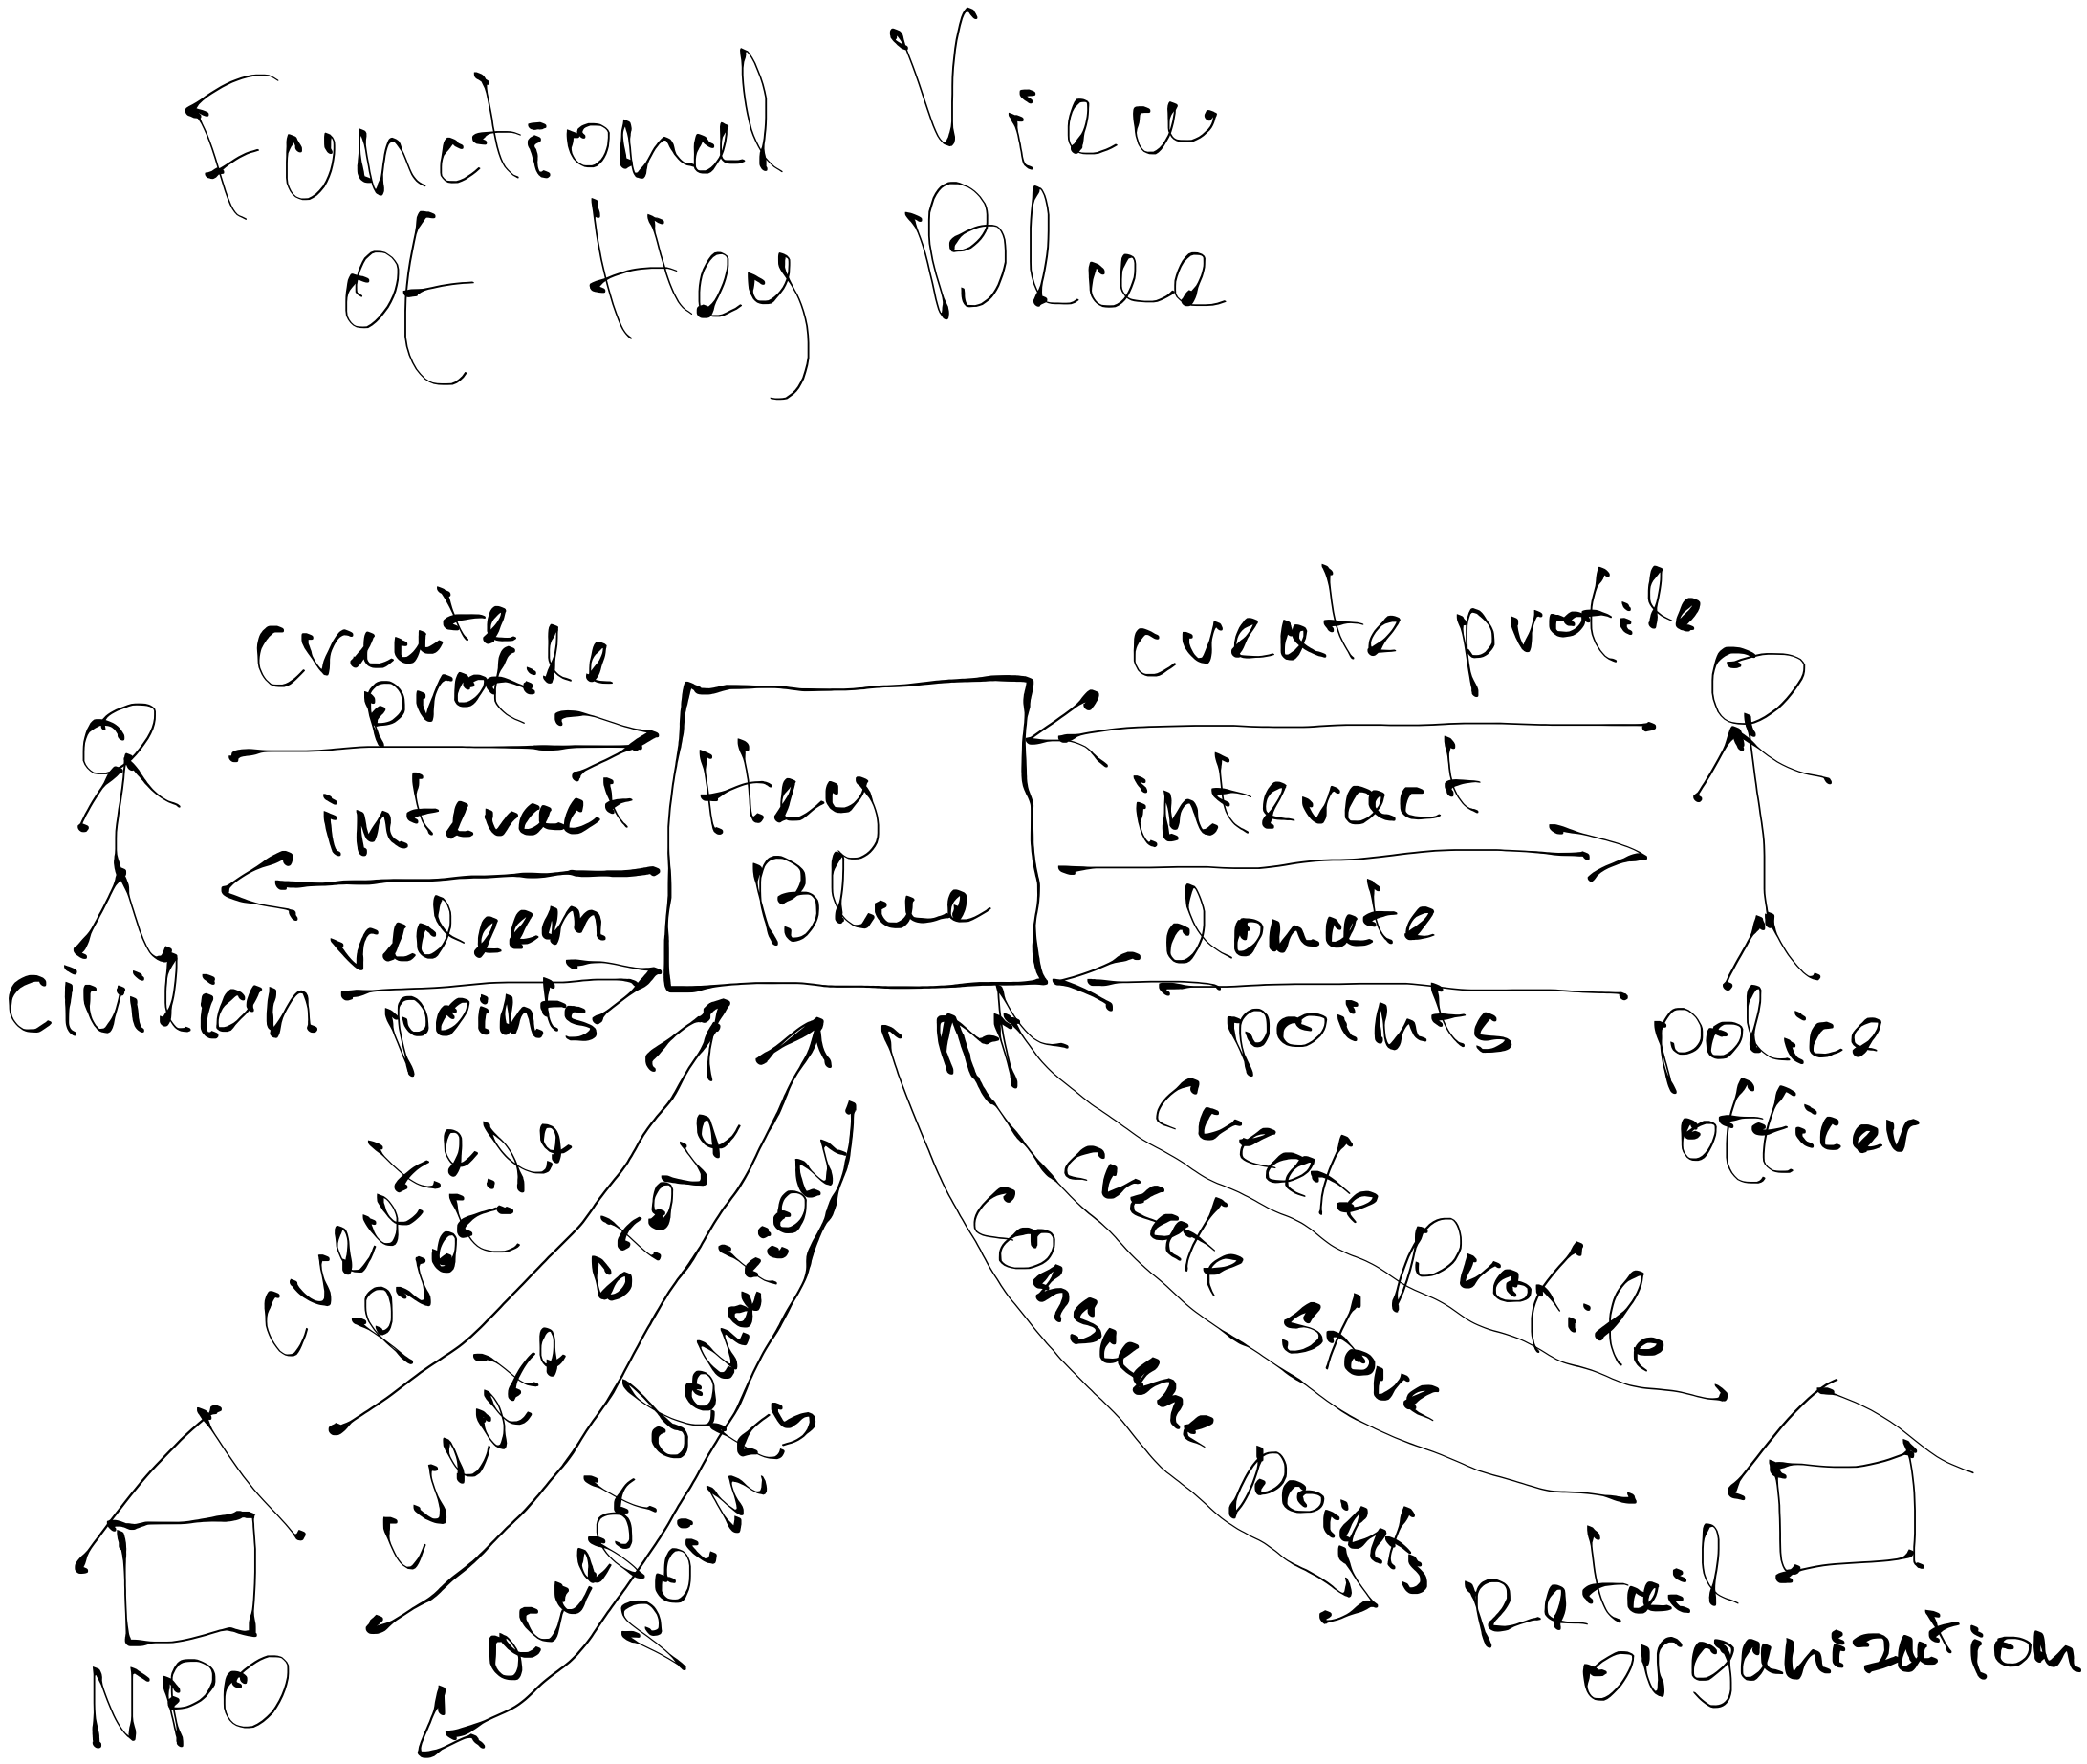 Functional View
of Hey Blue
create
profile
interact
redeem
points
Hey
Blue
create profile
interact
donate
points
civilian
police
officer
create
profile
create store
accept donation
points
create profile
create store
consume points
NPO
Retail
organization